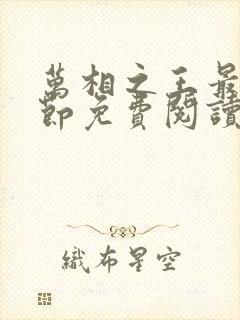 萬相之王最
節免費閱讀
織布星空